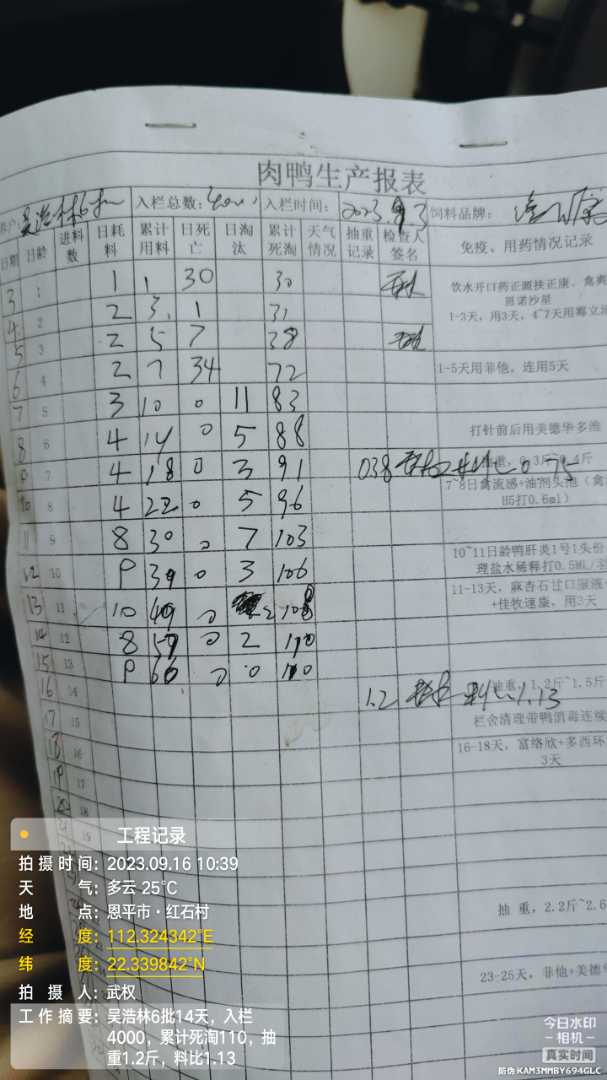 肉鸭生产报表
吴浩林6批 入栏总数: 4000 入栏时间: 2023.9.3 饲料品牌:
日期 日龄 进料数 日耗料 累计用料 日死亡 日淘汰 累计死淘 天气情况 抽重记录 检查人签名 免疫、用药情况记录
3 1 1 1 30 30
饮水开口药正源挟正康、禽
恩诺沙星
4 2 2 3. 1 31
1-3天, 用3天, 4~7天用霉立
5 3 2 5 7 38
6 4 2 7 34 72 1-5天用菲他, 连用5天
7 5 3 10 0 11 83
8 6 4 14 0 5 88 打针前后用美德华多维
9 7 4 18 0 3 91 038 0.75
7~8日禽流感+油剂头孢(禽
10 8 4 22 0 5 96 H5打0.6ml)
11 9 8 30 0 7 103
10~11日龄鸭肝炎1号1头份
12 10 9 39 0 3 106 理盐水稀释打0.5ML/
11-13天, 麻杏石甘口服液
13 11 10 49 0 2 108 +佳牧速蒎, 用3天
14 12 8 57 0 2 110
15 13 9 66 0 0 110
16 14 抽重, 1.2斤~1.5斤
1.2 料比1.13
17 15 栏舍清理带鸭消毒连续
18 16 16-18天, 富络欣+多西环
3天
19 17
20 18
21 19
抽 重, 2.2斤~2.6
23-25天, 菲他+美德华
工程记录
拍摄时间: 2023.09.16 10:39
天气: 多云 25°C
地点: 恩平市·红石村
经度: 112.324342°E
纬度: 22.339842°N
拍摄人: 武权
工作摘要: 吴浩林6批14天，入栏
4000，累计死淘110，抽
重1.2斤，料比1.13
今日水印
-相机-
真实时间
防伪 KAM3MMBY694GLC